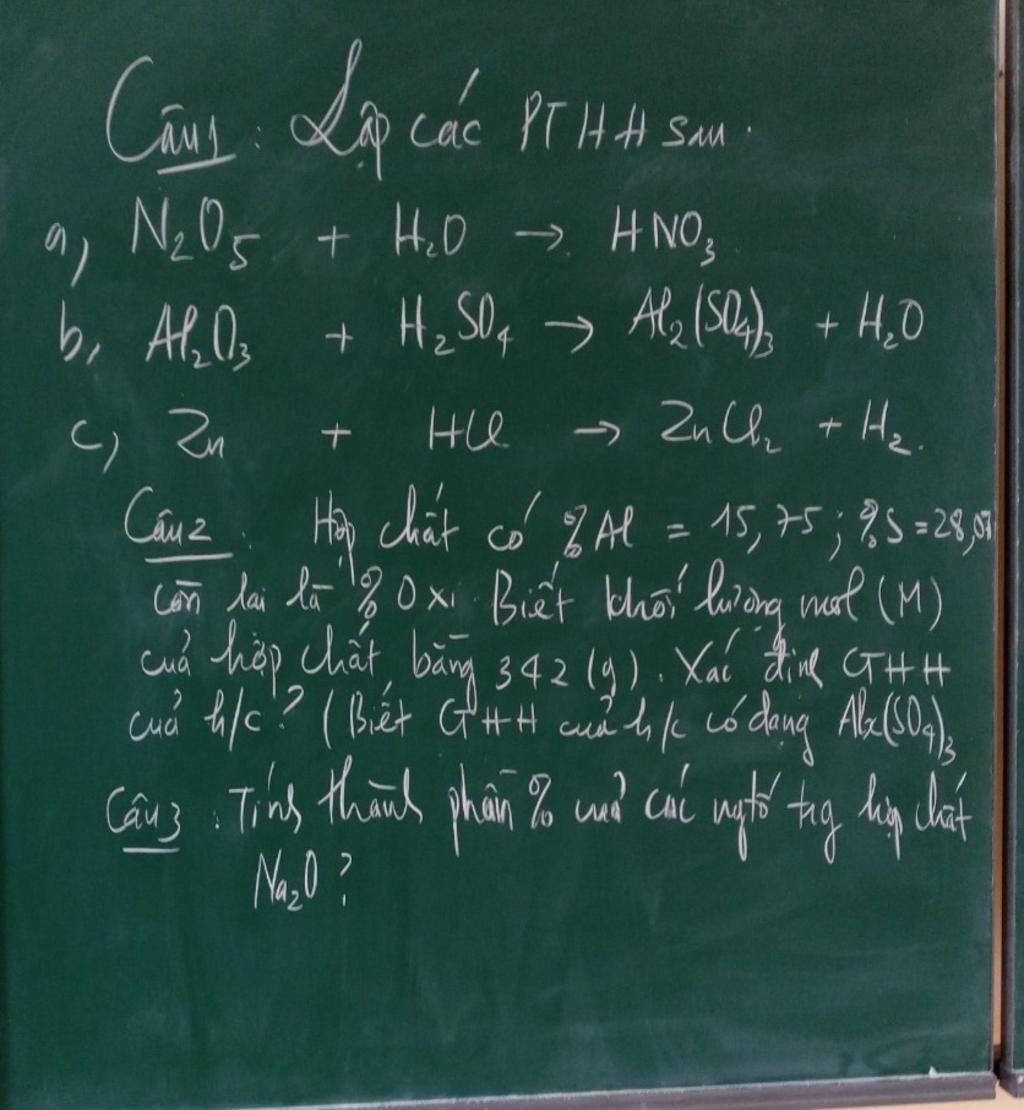 Câu1: Lập các PTHH sau.
a, N₂O₅ + H₂O → HNO₃
b, Al₂O₃ + H₂SO₄ → Al₂(SO₄)₃ + H₂O
c, Zn + HCl → ZnCl₂ + H₂.
Câu2. Hợp chất có %Al = 15,75; %S = 28,07
còn lại là % Oxi. Biết khối lượng mol (M)
của hợp chất bằng 342 (g). Xác định CTHH
của h/c? (Biết CTHH của h/c có dạng Alx(SO₄)₃
Câu3: Tính thành phần % của các ngtố trg hợp chất
Na₂O?